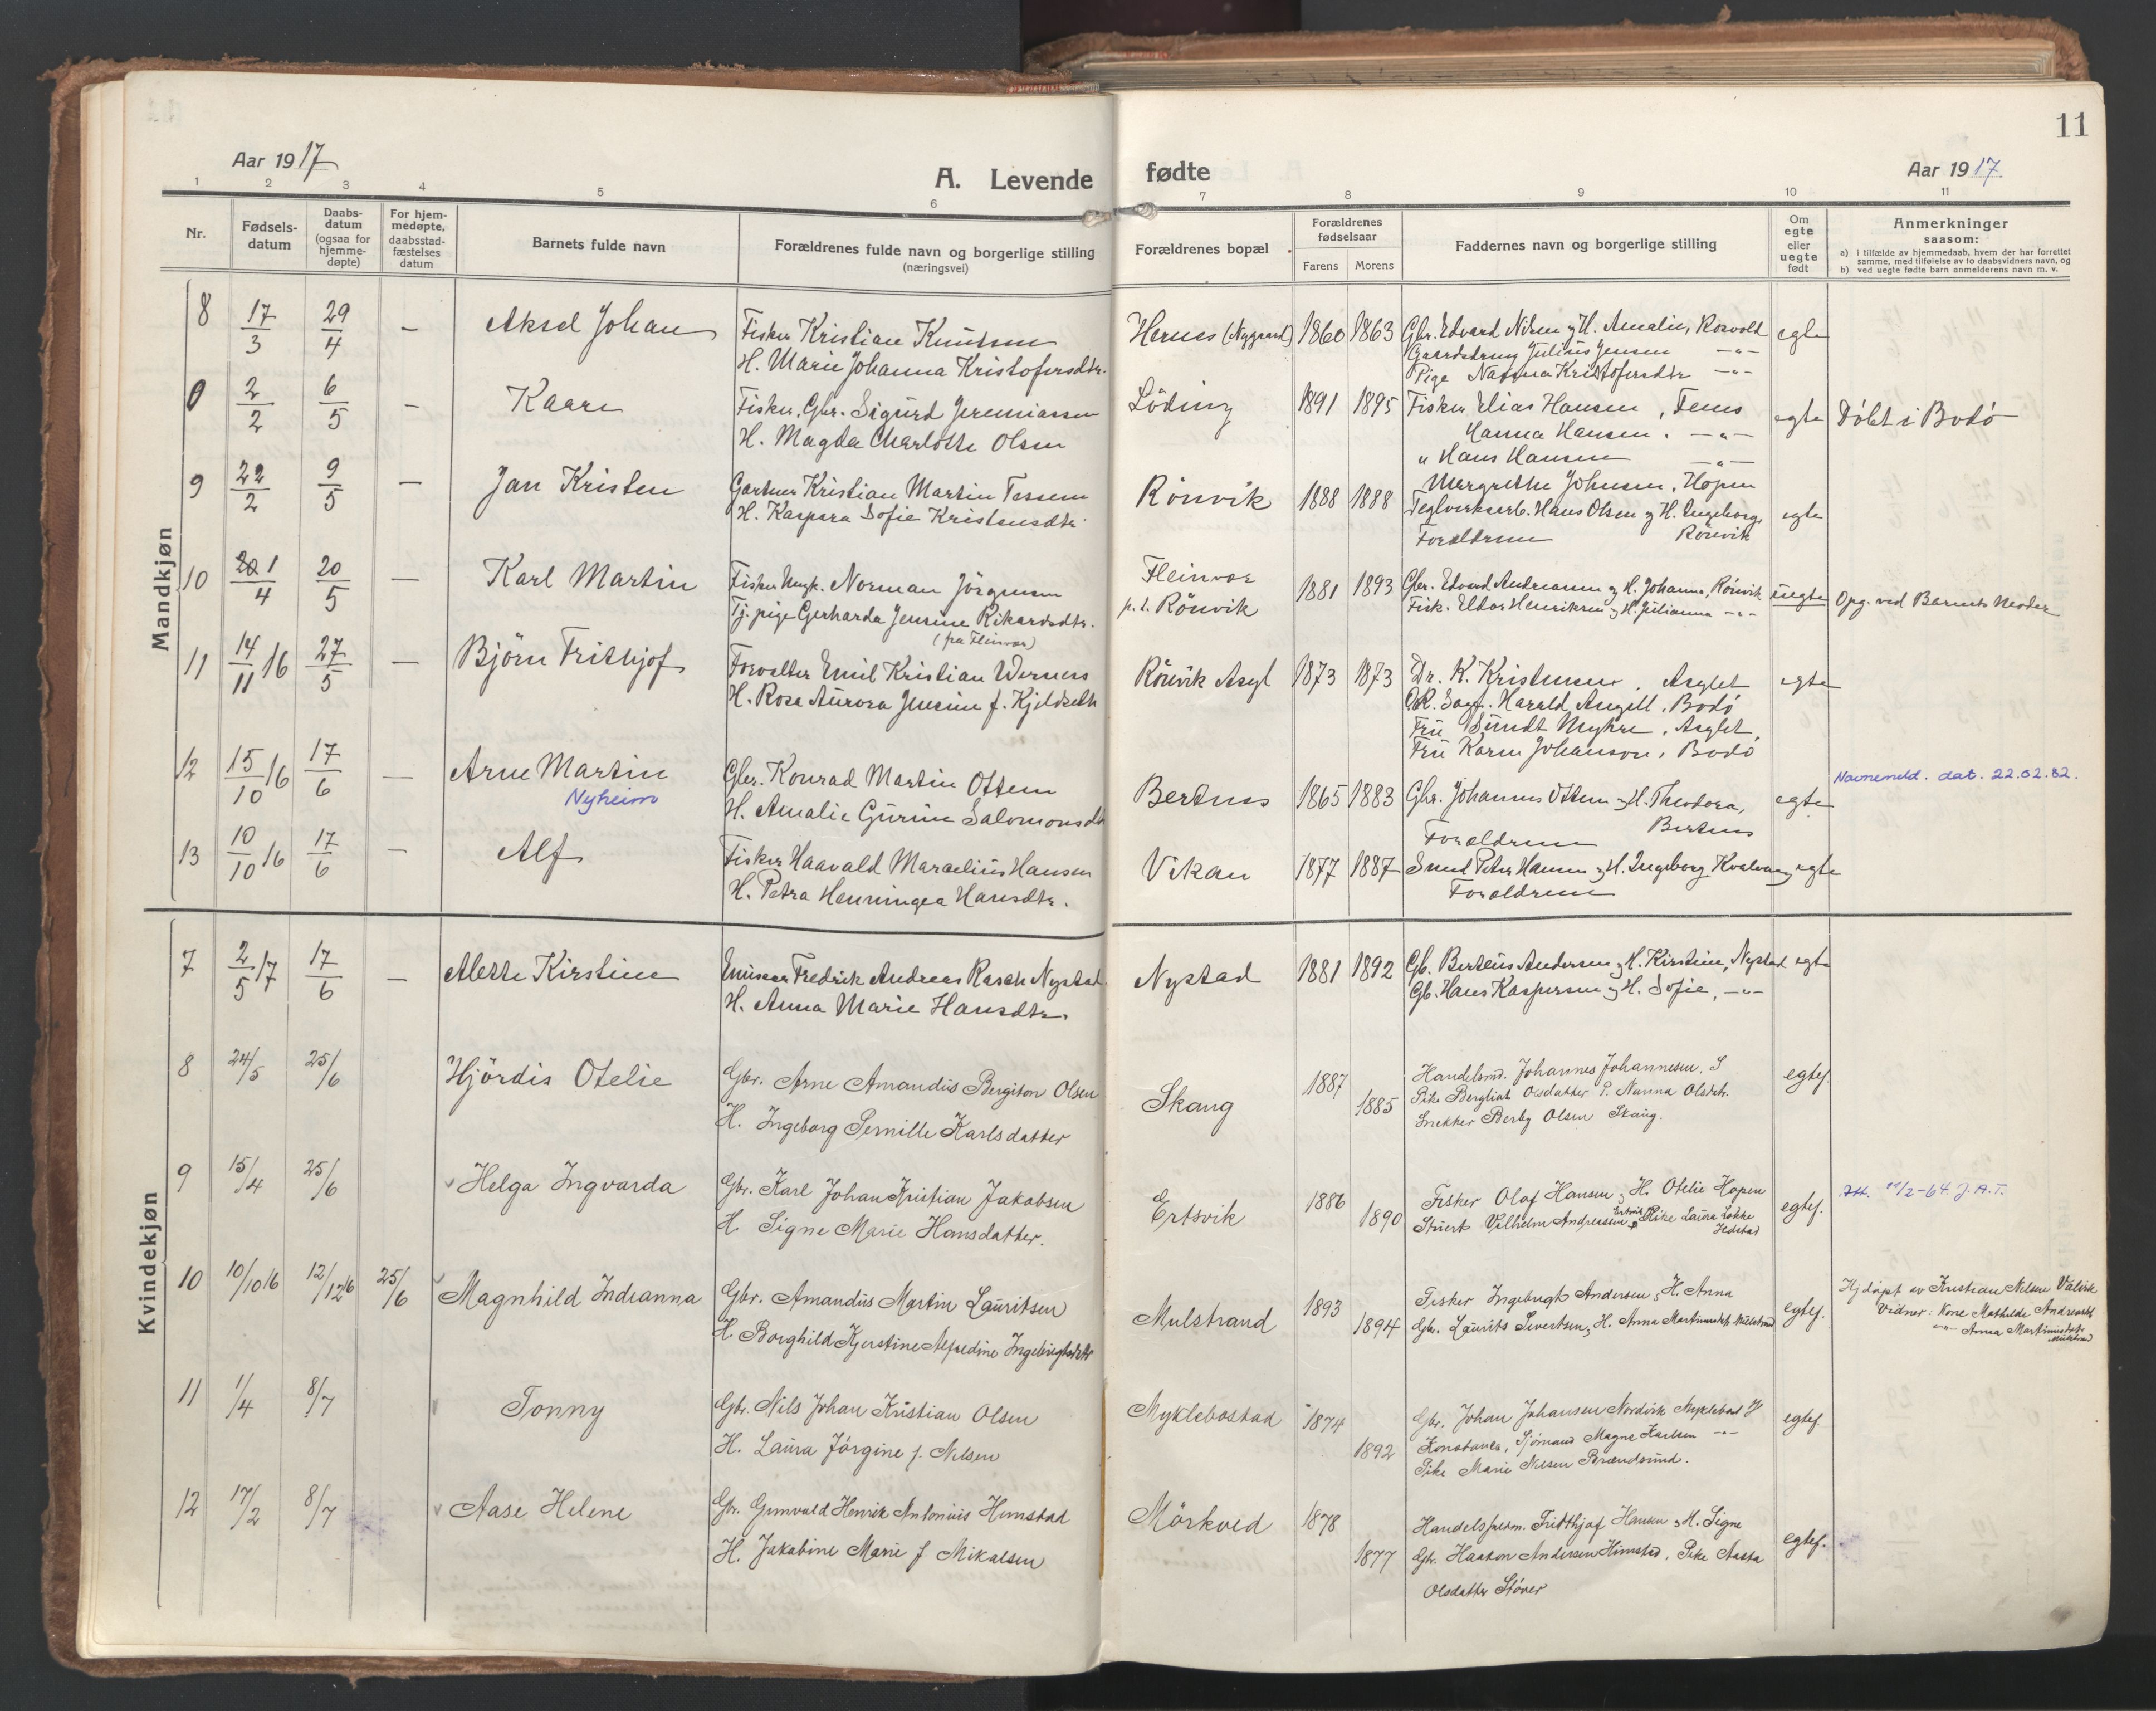 11
Aar 1917
A. Levende fødte
Aar 1917
1 2 3 4 5 6 7 8 9 10 11
Nr.
Fødsels-
datum
Daabs-
datum
(ogsaa for
hjemme-
døpte)
For hjem-
medøpte,
daabsstad-
fæstelses
datum
Barnets fulde navn
Forældrenes fulde navn og borgerlige stilling
(næringsvei)
Forældrenes bopæl
Forældrenes
fødselsaar
Farens Morens
Faddernes navn og borgerlige stilling
Om
egte
eller
uegte
født
Anmerkninger
saasom:
a) i tilfælde av hjemmedaab, hvem der har forrettet
samme, med tilføielse av to daabsvidners navn, og
b) ved uegte fødte barn anmelderens navn m. v.
Mandkjøn
8 17/3 29/4 — Aksel Johan
Fisker Kristian Knutsen
H. Marie Johanna Kristofersdtr.
Hernes (Nygaard) 1860 1863
Gbr. Edvard Nilsen og H. Amalie, Rosvold
Gaardsdreng Julius Jensen —"—
Pige Kristofersdtr —"—
egte
0 2/2 6/5 — Kaare
Fisker, Gbr. Sigurd Jeremiassen
H. Magda Charlotte Olsen
Löding 1891 1895
Fisker Elias Hansen, Fenes
Hanna Hansen. —"—
" Hans Hansen —"—
egte Döbt i Bodö
9 22/2 9/5 — Jan Kristen
Gartner Kristian Martin Tessem
H. Kaspara Sofie Kristensdtr.
Rönvik 1888 1888
Margrethe Johnsen, Hopen
Teglverkserb. Hans Olsen og H. Ingeborg,
Forældrene Rönvik
egte
10 1/4 20/5 — Karl Martin
Fisker Ungk. Norman Jörgensen
Tj. pige Gerharda Jensine Rikardsdtr.
(fra Fleinvær)
Fleinvær
p. t. Rönvik 1881 1893
Gbr. Edvard Andreassen og H. Johanna, Rönvik
Fisk. Eldor Henriksen og H. Julianna —"—
uegte Opg. ved Barnets Moder
11 14/11 16 27/5 — Björn Frithjof
Forvalter Emil Kristian Werness
H. Rosa Aurora Jensine f. Kjeldseth
Rönvik Asyl 1873 1873
Dr. K. Kristensen, Asylet
O.R. Sagf. Harald Angell, Bodö
Fru Sundt Myhre, Asylet,
Fru Karen Johanson, Bodö
egte
12 15/10 16 17/6 — Arne Martin
Nyheim
Gbr. Konrad Martin Ottem
H. Amalie Gurine Salomonsdtr
Bertnes 1865 1883
Gbr. Johannes Ottem og H. Theodora,
Forældrene Bertnes
egte Navnemeld. dat. 22.02.82.
13 10/10 16 17/6 — Alf
Fisker Haavald Marcelius Hansen
H. Petra Henningea Hansdtr.
Vikan 1877 1887
Smed Peter Hansen og H. Ingeborg Kvalvaag
Forældrene
egte
Kvindekjøn
7 2/5 17 17/6 — Alette Kirstine
Emissær Fredrik Andreas Rasch Nystad.
H. Anna Marie Hansdtr.
Nystad 1881 1892
Gb. Berteus Andersen og H. Kirstine, Nystad
Gb. Hans Kaspersen og H. Sofie, —"—
egte
8 24/5 25/6 Hjördis Otelie
Gbr. Arne Amandus Bergiton Olsen
H. Ingeborg Pernille Karlsdatter
Skaug 1887 1885
Handelsmd. Johannes Johannesen, S
Pike Bergliot Olsdatter P. Nanna Olsdtr.
Snekker Berby Olsen Skaug.
egtef.
9 15/4 25/6 Helga Ingvarda
Gbr. Karl Johan Kristian Jakobsen
H. Signe Marie Hansdatter.
Ertsvik 1886 1890
Fisker Olaf Hansen og H. Otelie Hopen
Stuert Vilhelm Andreassen Ertsvik, Pike Laura Løkke
Hedstad
egtef. Att. 11/2-64. J.A.T.
10 10/10 16 12/12 16 25/6 Magnhild Indianna
Gbr. Amandus Martin Lauritsen
H. Borghild Kjerstine Alfredine Ingebrigtsdtr
Mulstrand 1893 1894
Fisker Ingebrigt Andersen og H. Anna
Gbr. Laurits Sivertsen og H. Anna Martinusdtr. Mulstrand
egtef. Hj.døpt av Kristian Nilsen Valvik
Vidner: Kone Mathilde Andreasdtr
—"— Anna Martinusdatr
Mulstrand
11 1/4 8/7 Tonny
Gbr. Nils Johan Kristian Olsen
H. Laura Jörgine f. Nilsen
Myklebostad 1874 1892
Gbr. Johan Johansen Nordvik Myklebost
Konstance, Sjømand Magne Karlsen —"—
Pike Marie Nilsen Brændsund.
egtef
12 17/2 8/7 Aase Helene
Gbr. Gunvald Henrik Antonius Himstad
H. Jakobine Marie f. Mikalsen
Mörkved 1878 1877
Handelsfuldm. Fritthjof Hansen og H. Signe
Gbr. Haakon Andersen Himstad, Pike Aasta
Olsdatter Støver
egtef.